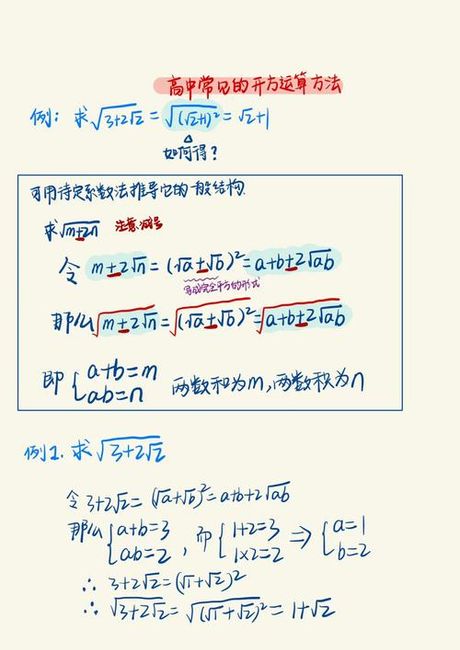 高中常见的开方运算方法
例: 求√(3+2√2) = √((√2+1)²) = √2+1
如何得?
可用待定系数法推导它的一般结构.
求√(m±2√n) 注意减号
令 m±2√n = (√a±√b)² = a+b±2√ab
写成完全平方的形式
那么√(m±2√n) = √((√a±√b)²) = √(a+b±2√ab)
即 { a+b=m
ab=n 两数和为m,两数积为n
例1. 求√(3+2√2)
令 3+2√2 = (√a+√b)² = a+b+2√ab
那么 { a+b=3
ab=2 , 而 { 1+2=3
1×2=2 ⇒ { a=1
b=2
∴ 3+2√2 = (√1+√2)²
∴ √(3+2√2) = √((√1+√2)²) = 1+√2